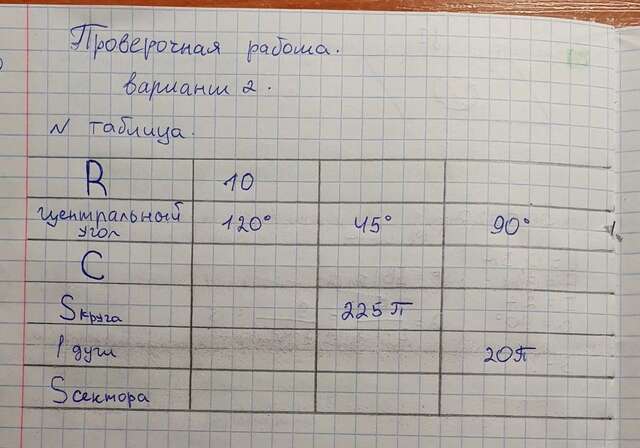 Проверочная работа.
вариант 2.
N таблица.
R 10
центральный угол 120° 45° 90°
C
Sкруга 225π
l дуги 20π
Sсектора